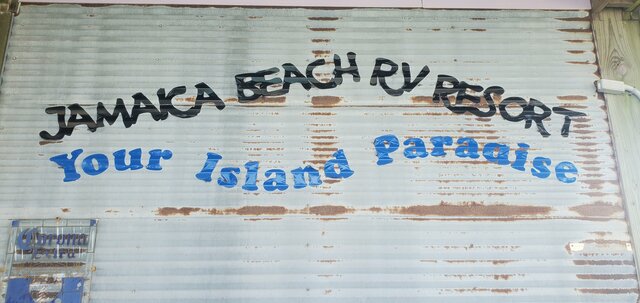 JAMAICA BEACH RV RESORT
Your Island Paradise
Corona
Extra